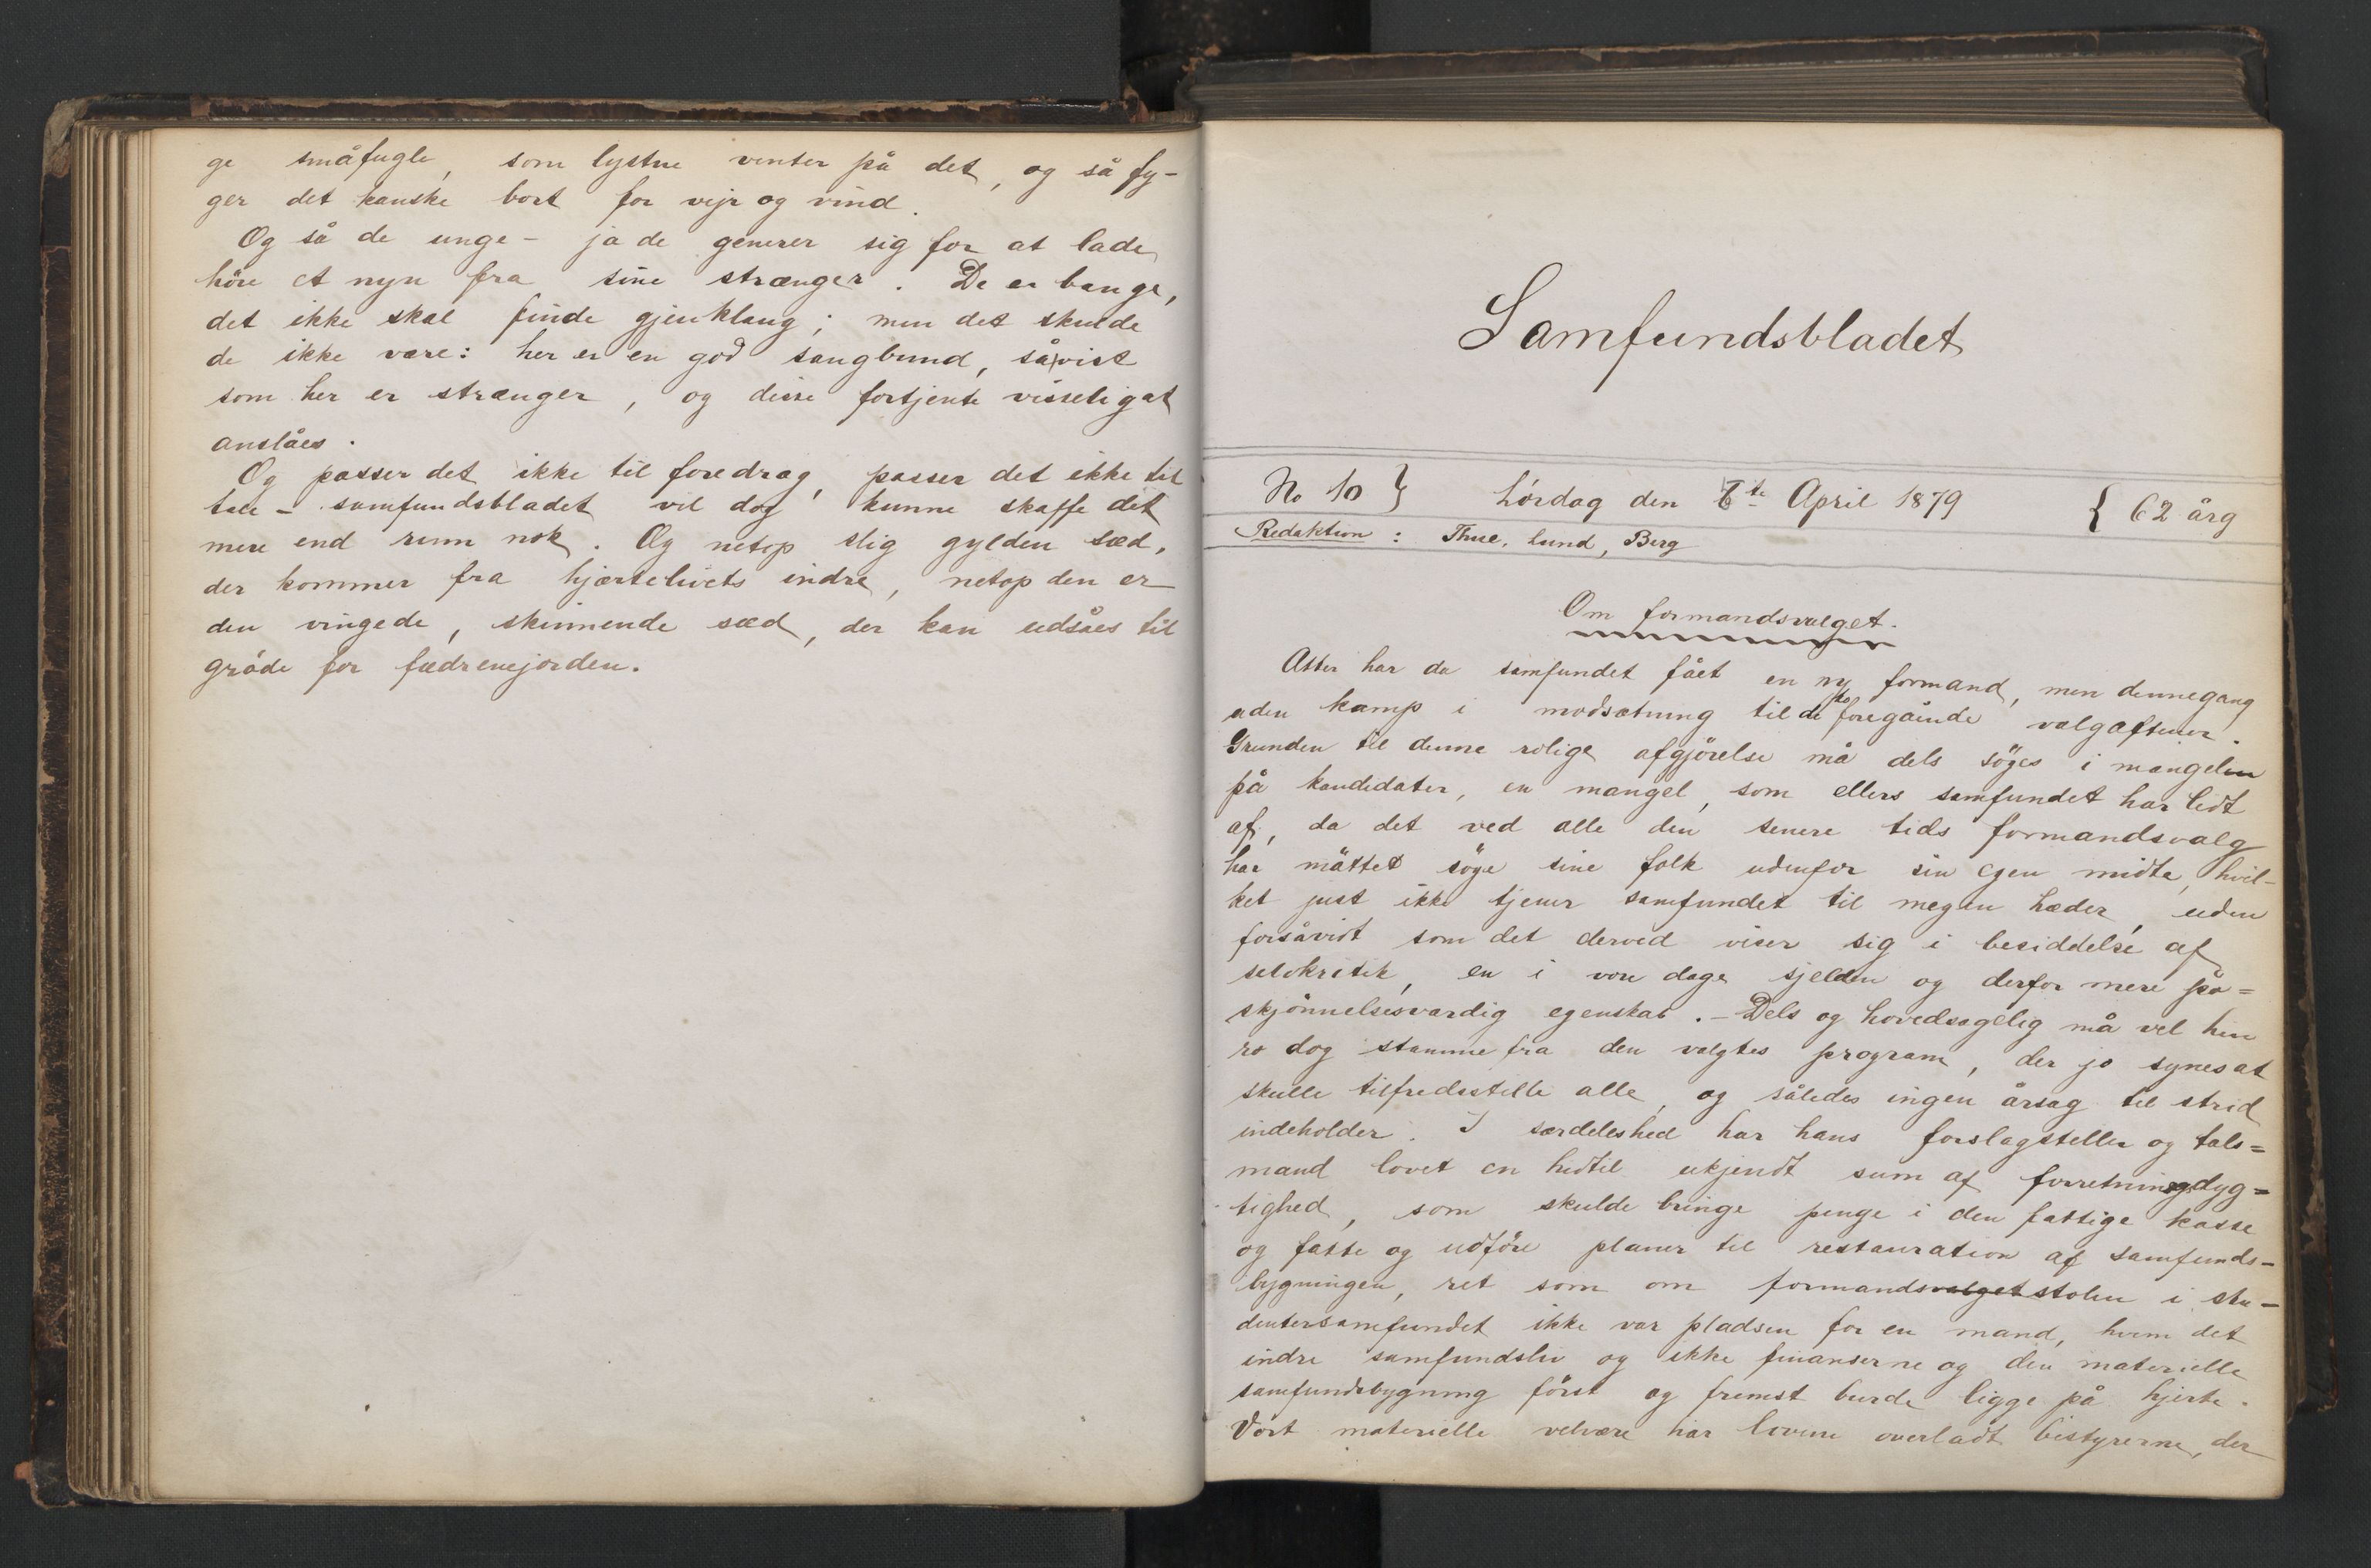 ge småfugle, som lystne venter på det, og så fy-
ger det kanske bort for vejr og vind.
Og så de unge - ja de generer sig for at lade
höre et nyn fra sine strænger. De er bange,
det ikke skal finde gjenklang; men det skulde
de ikke være: her er en god sangbund, såvist
som her er strænger, og disse fortjente visseligat
anslåes.
Og passer det ikke til foredrag, passer det ikke til
tale - samfundsbladet vil dog kunne skaffe det
mere end rum nok. Og netop slig gylden sæd,
der kommer fra hjertelivets indre, netop den er
den vingede, skinnende sæd, der kan udsåes til
gröde for fædrenejorden.
Samfundsbladet
No 10 } Lördag den 5te April 1879 { 62 årg
Redaktion: Thue, Lund, Berg
Om formandsvalget.
Atter har da samfundet fået en ny formand, men dennegang
uden kamp i modsætning til de to foregående valgaftener.
Grunden til denne rolige afgjörelse må dels söges i mangelen
på kandidater, en mangel, som ellers samfundet har lidt
af, da det ved alle den senere tids formandsvalg
har måttet söge sine folk udenfor sin egen midte, hvil-
ket just ikke tjener samfundet til megen hæder, uden
forsåvidt som det derved viser sig i besiddelse af
selvkritik, en i vore dage sjelden og derfor mere på=
skjönnelsesværdig egenskab. - Dels og hovedsagelig må vel hin
ro dog stamme fra den valgtes program, der jo synes at
skulle tilfredsstille alle, og således ingen årsag til strid
indeholder. I særdeleshed har hans forslagstiller og tals=
mand lovet en hidtil ukjendt sum af forretningsdyg=
tighed, som skulde bringe penge i den fattige kasse
og fatte og udföre planer til restauration af samfunds-
bygningen, ret som om formandsvalgetstolen i stu-
dentersamfundet ikke var pladsen for en mand, hvem det
indre samfundsliv og ikke finanserne og den materielle
samfundsbygning först og fremst burde ligge på hjerte.
Vört materielle velvære har lovene overladt bestyrerne, der